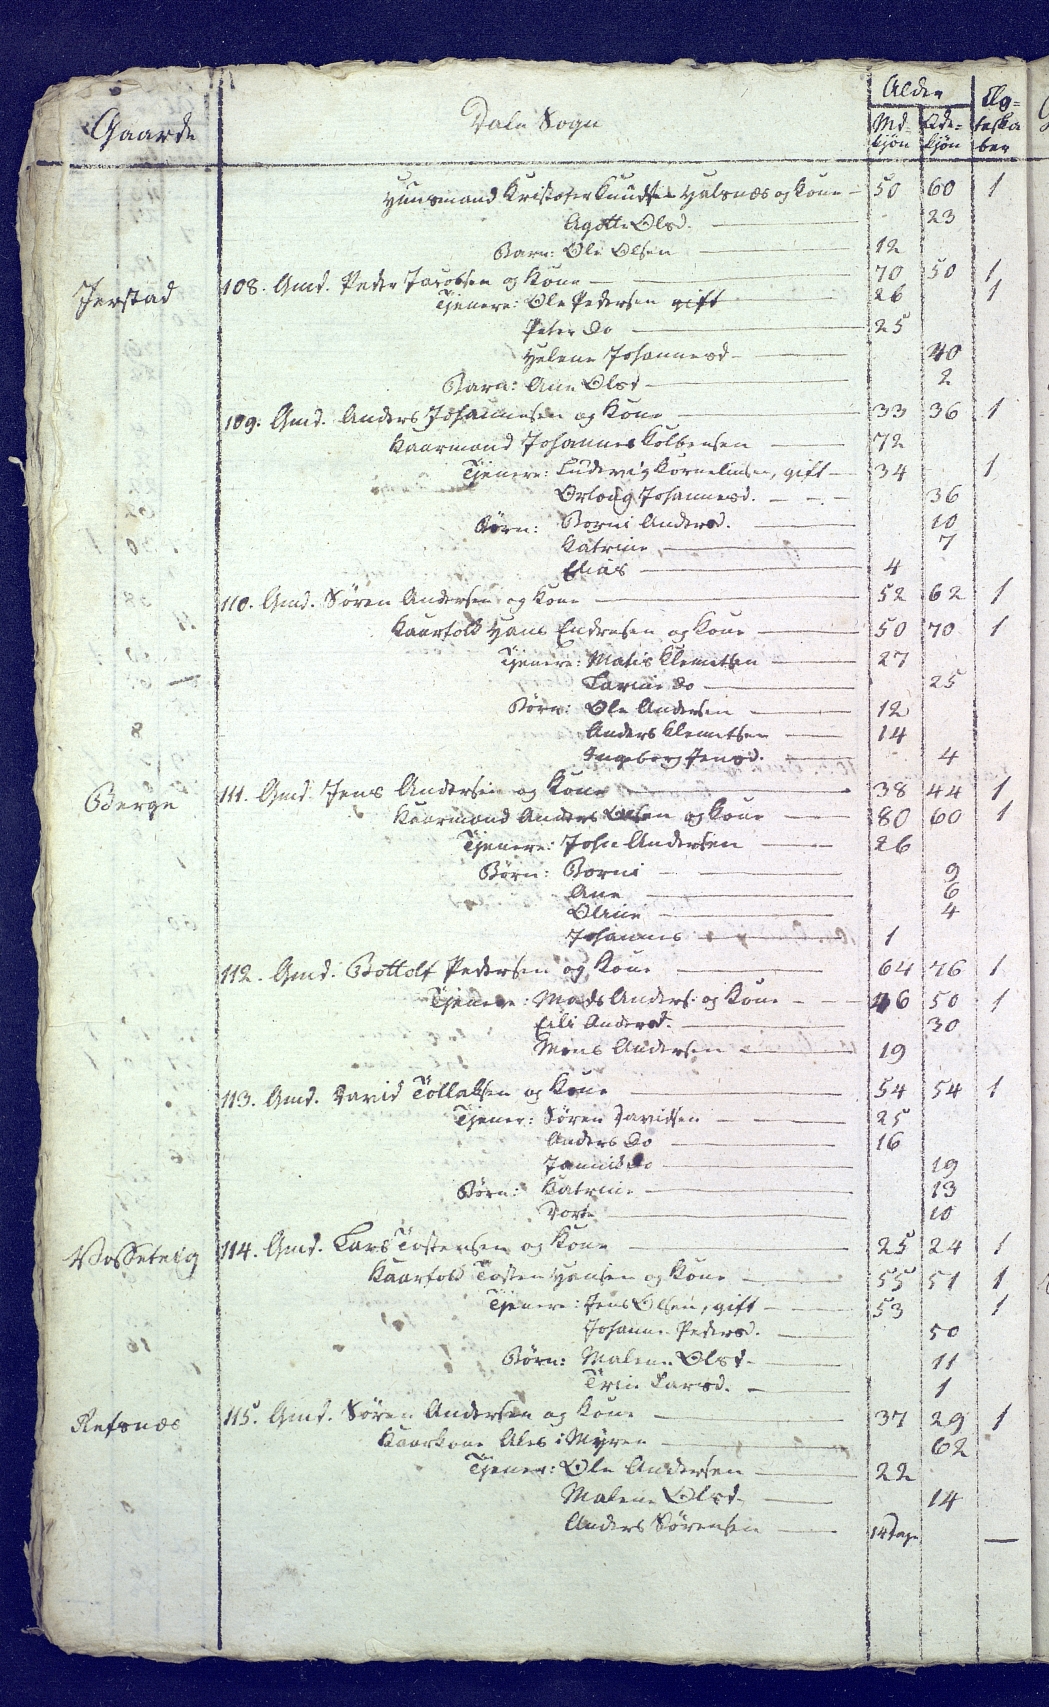 Gaarde Dale Sogn Alder Ægteskaber
Md-kjön Qde-kjön
Huusmand Kristofer Knudsen Halsnæs og Kone - 50 60 1
Agotte Olsd. 23
Barn: Ole Olsen 12
Jerstad 108. Gmd. Peder Jacobsen og Kone 70 50 1
Tjenere: Ole Pedersen gift 26 1
Peter Do 25
Helene Johannesd. 40
Barn: Ane Olsd 2
109. Gmd. Anders Johannesen og Kone 33 36 1
Kaarmand Johannes Kolbensen 72
Tjenere: Ludevig Kornelinsen, gift 34 1
Johannesd. 36
Börn: Borni Andersd. 10
Katrine 7
Elias 4
110. Gmd. Sören Andersen og Kone 52 62 1
Kaarfolk Hans Endresen og Kone 50 70 1
Tjenere: Matis Klemetsen 27
Larine Do 25
Börn: Ole Andersen 12
Anders Klemetsen 14
Ingeborg Jensd. 4
Berge 111. Gmd. Jens Andersen og Kone 38 44 1
Kaarmand Anders Olsen og Kone 80 60 1
Tjenere: John Andersen 26
Börn: Borni 9
Ane 6
Oline 4
Johannes 1
112. Gmd. Bottolf Pedersen og Kone 64 76 1
Tjenere: Mads Anders. og Kone 46 50 1
Eli Andersd. 30
Mons Andersen 19
113. Gmd. David Tollaksen og Kone 54 54 1
Tjener: Sören Davidsen 25
Anders Do 16
Do 19
Börn: Katrine 13
Dorte 10
Vosseteig 114. Gmd. Lars Tostensen og Kone 25 24 1
Kaarfolk Tosten Hansen og Kone 55 51 1
Tjenere: Jens Olsen, gift 53 1
Johanne Pedersd. 50
Börn: Malene Olsd. 11
Trine Larsd. 1
Refsnæs 115. Gmd. Sören Andersen og Kone 37 29 1
Kaarkone Ales i Myren 62
Tjener: Ole Andersen 22
Malene Olsd. 14
Anders Sörensen 14 Dage